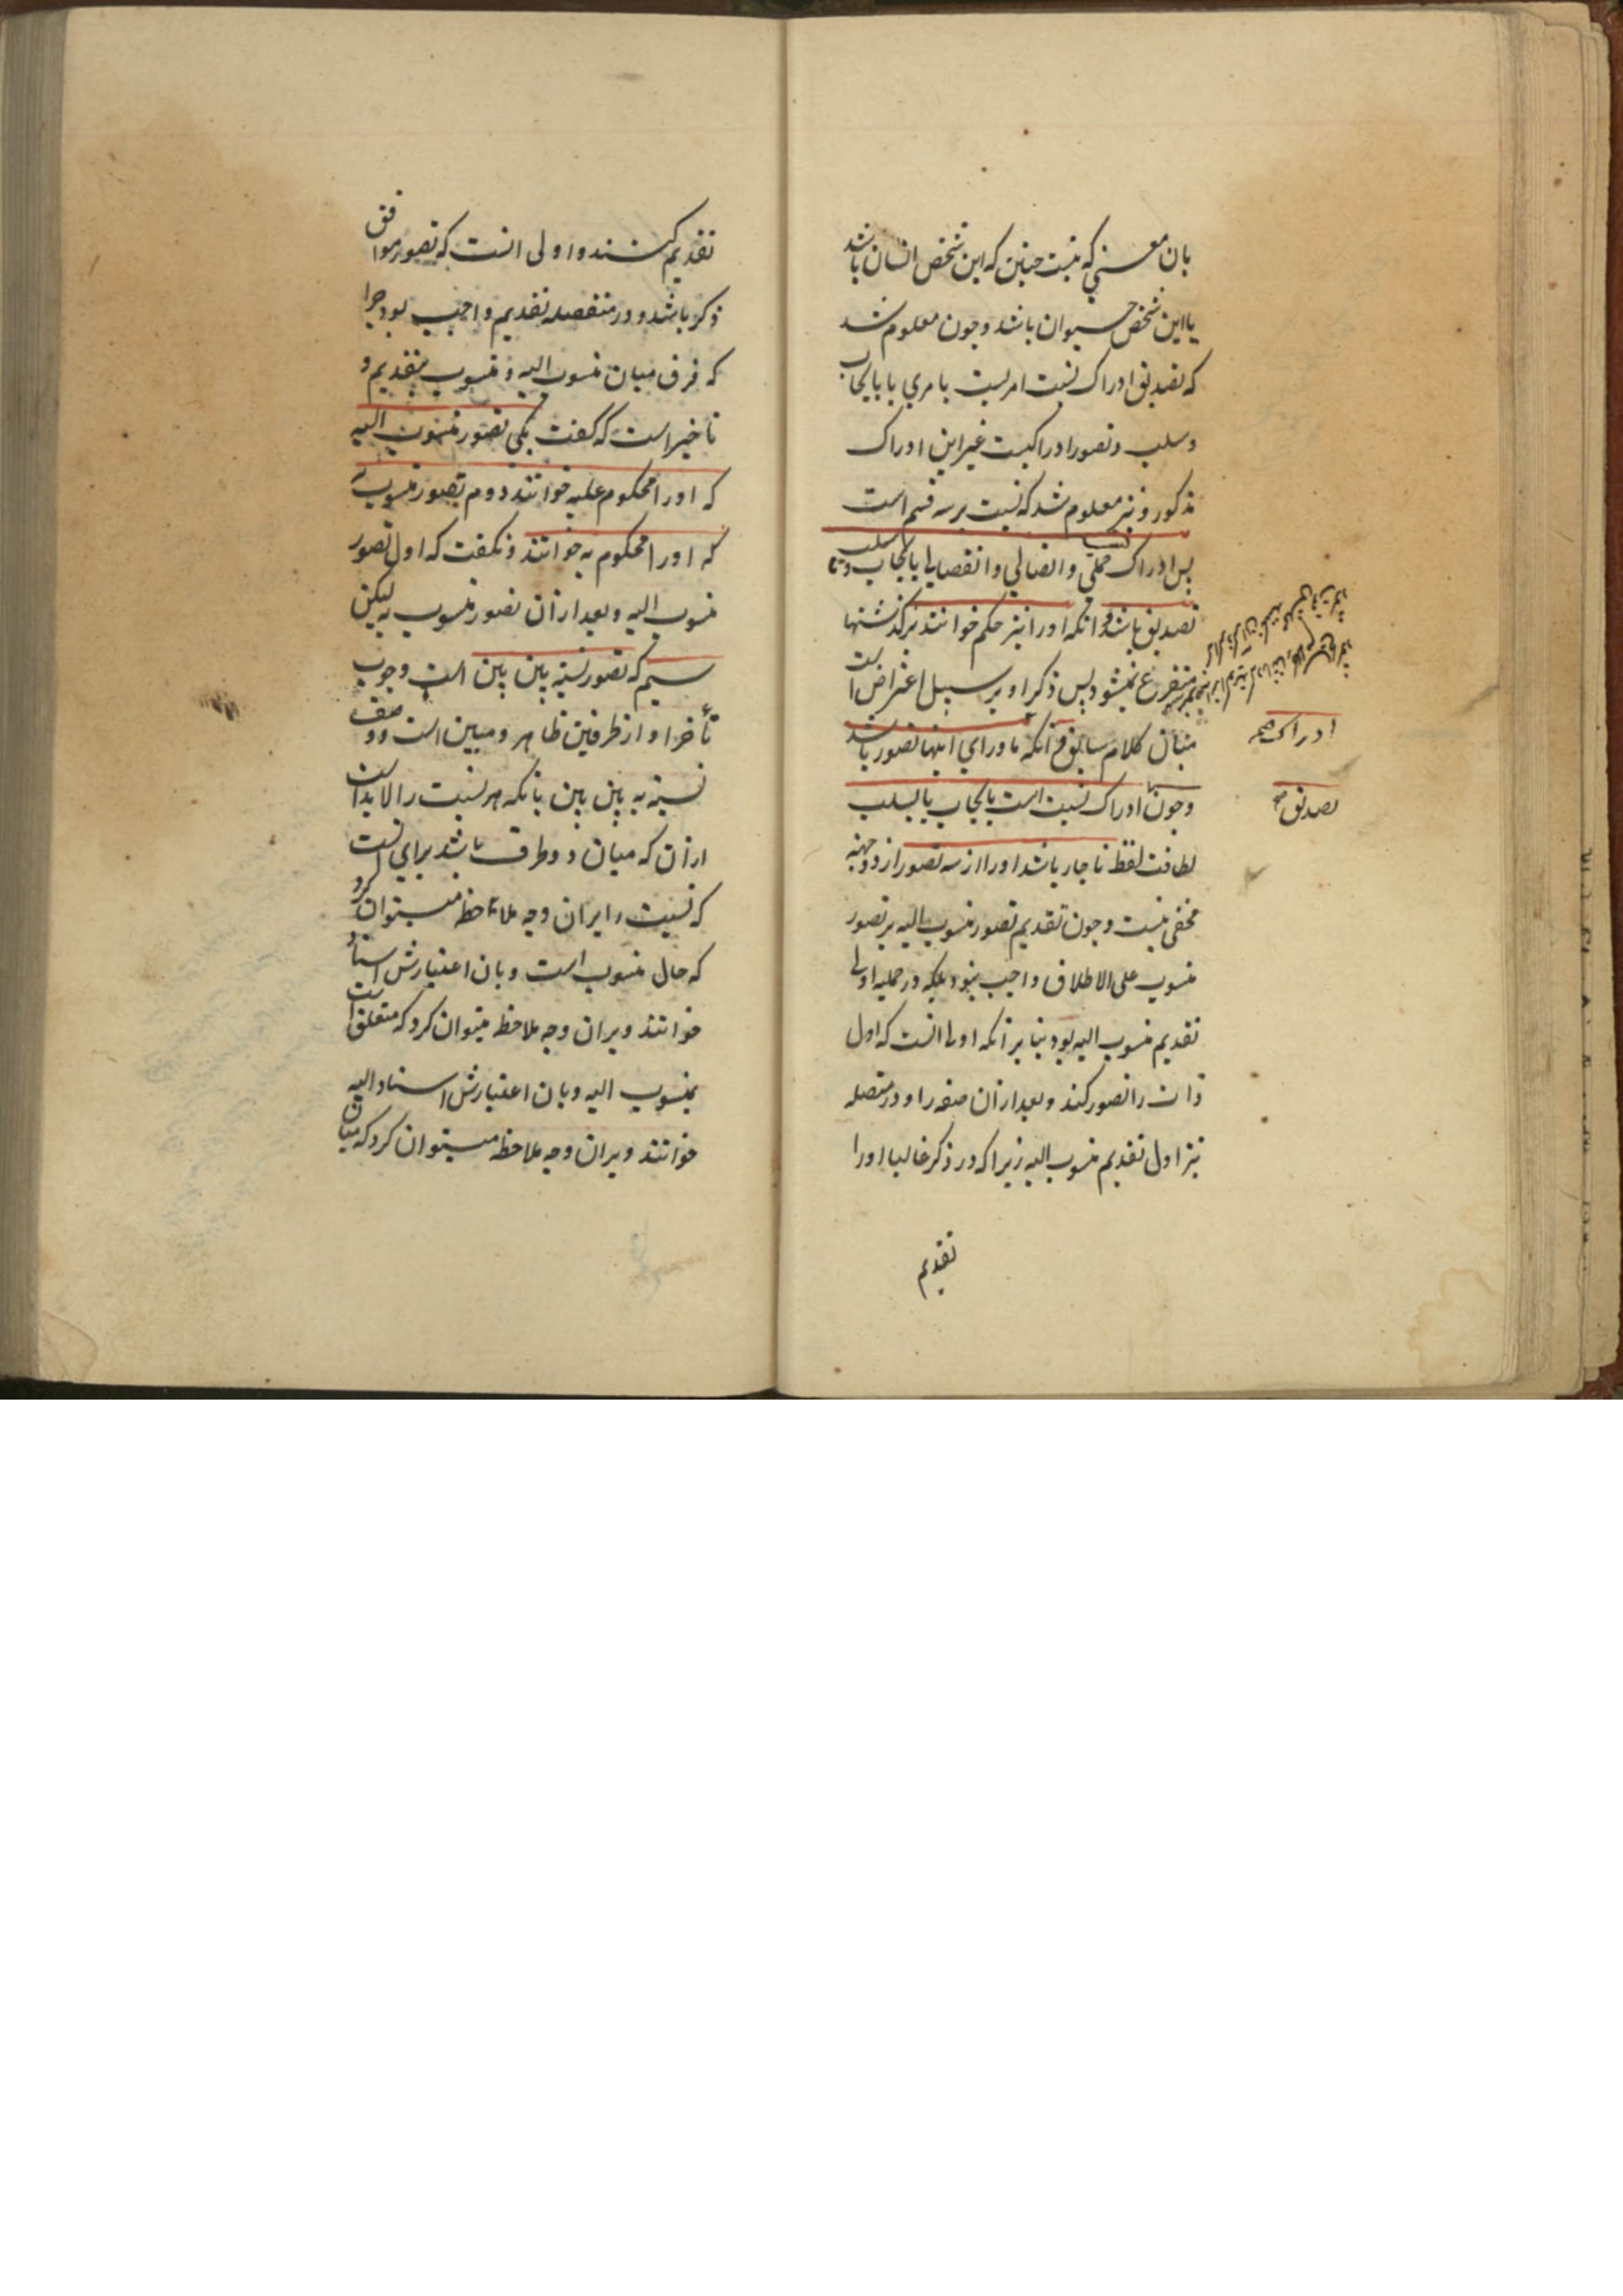 بان معنی که نیست چنین که این شخص انسان باشد
یا این شخص حیوان باشد و چون معلوم شد
که تصدیق ادراک نسبت امریست بامری بایجاب
و سلب و تصور ادراکیست غیر این ادراک
مذکور و نیز معلوم شد که نسبت بر سه قسم است
پس ادراک حملی و اتصالی و انفصالی بایجاب و یا سلب
تصدیق باشد و آنکه او را نیز حکم خوانند بر گذشتها
متفرع نمیشود پس ذکر او بر سبیل اعتراض است
میان کلام سابق و آنکه ماورای اینها تصور باشد
و چون ادراک نسبت است بایجاب یا بسلب
لطافت لفظ ناچار باشد او را از سه تصور از دو جهته
مخفی نیست و چون تقدیم تصور منسوب الیه بر تصور
منسوب علی الاطلاق واجب نبود بلکه در حملیه اولی
تقدیم منسوب الیه بود بنا بر آنکه اولی آنست که اول
ذات را تصور کنند و بعد از آن صفه را و در متصله
نیز اول تقدیم منسوب الیه زیرا که در ذکر غالبا او را
تقدیم
ادراک صح
تصدیق صح
تقدیم کنند و اولی آنست که تصور موافق
ذکر باشد و در منفصله تقدیم واجب بود چرا
که فرق میان منسوب الیه و منسوب بتقدیم و
تاخیر است که گفت یکی تصور منسوب الیه
که او را محکوم علیه خوانند دوم تصور منسوب به
که او را محکوم به خوانند و نگفت که اول تصور
منسوب الیه و بعد از آن تصور منسوب به لیکن
سیم که تصور نسبة بین بین است وجوب
تأخر او از طرفین ظاهر و مبین است و وصف
نسبة به بین بین بآنکه هر نسبت را لابد است
از آن که میان دو طرف باشد برای آنست
که نسبت را بر آن وجه ملاحظه میتوان کرد
که حال منسوب است و بان اعتبارش اسناد
خوانند و بر آن وجه ملاحظه میتوان کرد که متعلق است
بمنسوب الیه و بان اعتبارش اسناد الیه
خوانند و بر آن وجه ملاحظه میتوان کرد که میان